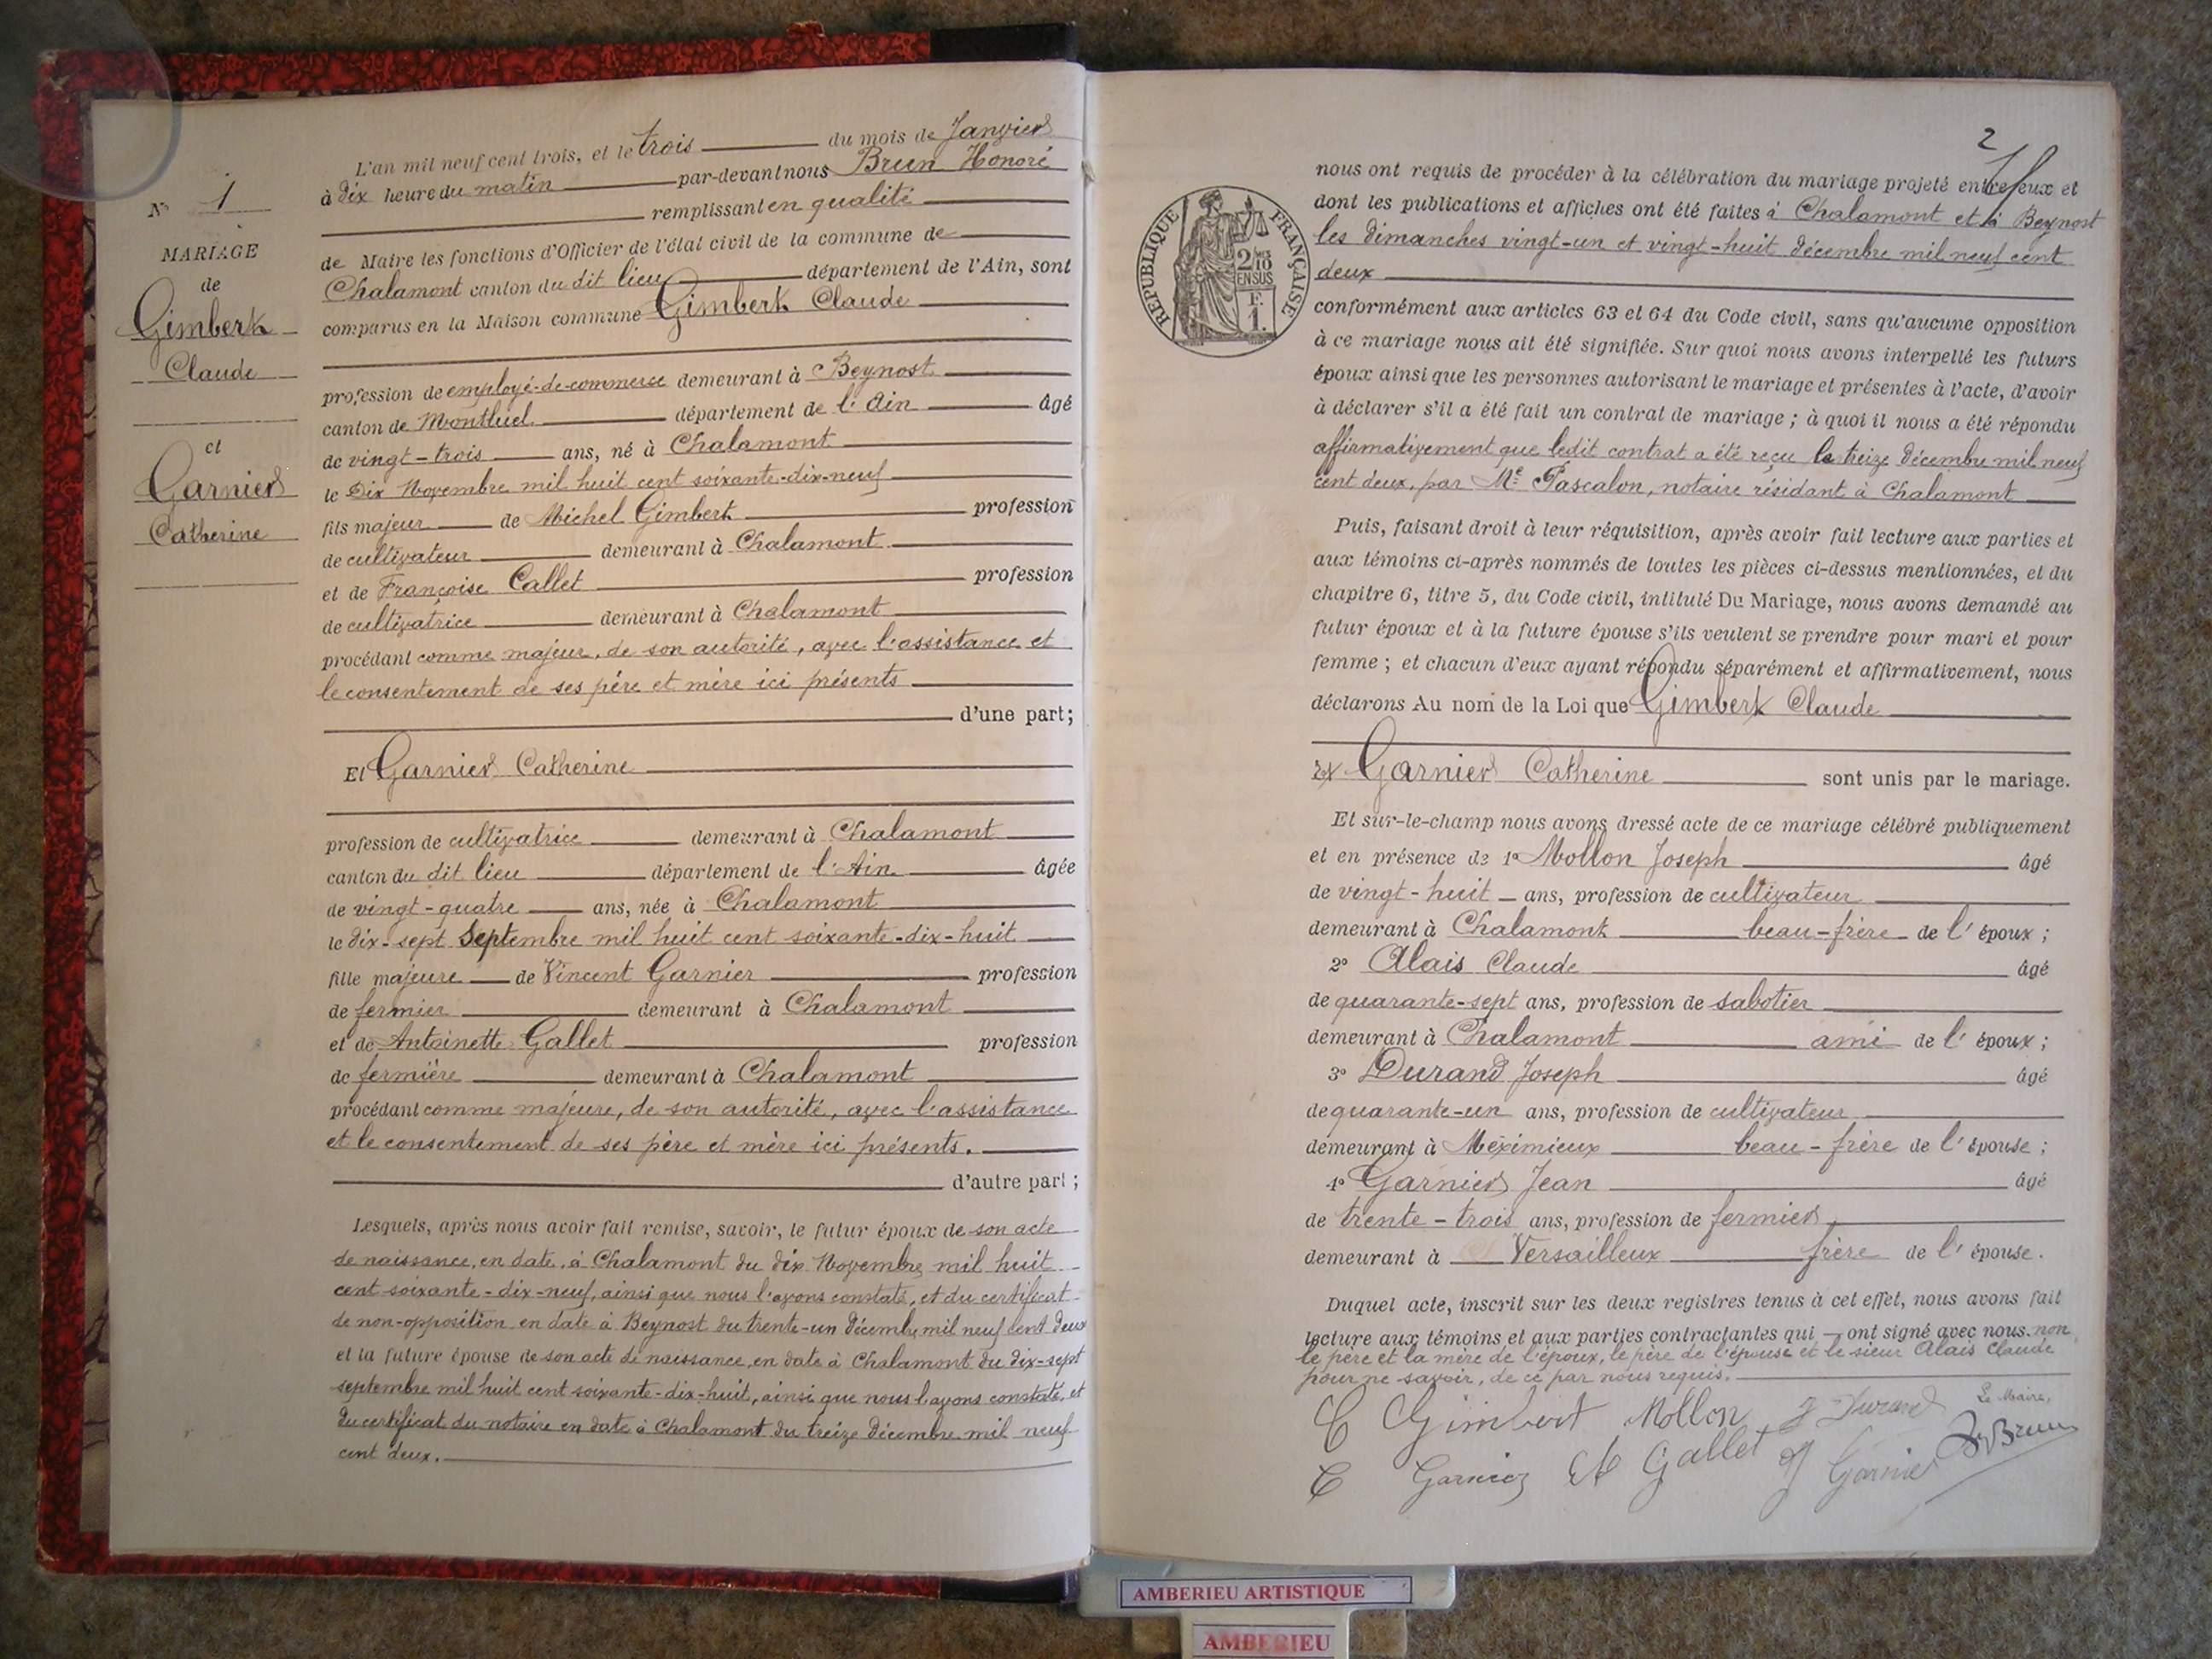 N° 1
MARIAGE
de
Gimbert
Claude
et
Garnier
Catherine
L'an mil neuf cent trois, et le trois du mois de Janvier
à dix heure du matin par-devant nous Brun Honoré
remplissant en qualité
de Maire les fonctions d'Officier de l'état civil de la commune de
Chalamont canton du dit lieu département de l'Ain, sont
comparus en la Maison commune Gimbert Claude
profession de employé-de-commerce demeurant à Beynost
canton de Montluel département de l'Ain âgé
de vingt-trois ans, né à Chalamont
le Dix Novembre mil huit cent soixante-dix-neuf
fils majeur de Michel Gimbert profession
de cultivateur demeurant à Chalamont
et de Françoise Callet profession
de cultivatrice demeurant à Chalamont
procédant comme majeur, de son autorité, avec l'assistance et
le consentement de ses père et mère ici présents
d'une part;
Et Garnier Catherine
profession de cultivatrice demeurant à Chalamont
canton du dit lieu département de l'Ain âgée
de vingt-quatre ans, née à Chalamont
le dix-sept Septembre mil huit cent soixante-dix-huit
fille majeure de Vincent Garnier profession
de fermier demeurant à Chalamont
et de Antoinette Gallet profession
de fermière demeurant à Chalamont
procédant comme majeure, de son autorité, avec l'assistance
et le consentement de ses père et mère ici présents.
d'autre part;
Lesquels, après nous avoir fait remise, savoir, le futur époux de son acte
de naissance, en date, à Chalamont du dix Novembre mil huit
cent soixante-dix-neuf, ainsi que nous l'avons constaté, et du certificat
de non-opposition en date à Beynost du trente-un décembre mil neuf cent deux
et la future épouse de son acte de naissance, en date à Chalamont du dix-sept
septembre mil huit cent soixante-dix-huit, ainsi que nous l'avons constaté, et
du certificat du notaire en date à Chalamont du treize décembre mil neuf
cent deux.
2
RÉPUBLIQUE FRANÇAISE
2/10
EN SUS
F.
1.
nous ont requis de procéder à la célébration du mariage projeté entre eux et
dont les publications et affiches ont été faites à Chalamont et à Beynost
les dimanches vingt-un et vingt-huit décembre mil neuf cent
deux
conformément aux articles 63 et 64 du Code civil, sans qu'aucune opposition
à ce mariage nous ait été signifiée. Sur quoi nous avons interpellé les futurs
époux ainsi que les personnes autorisant le mariage et présentes à l'acte, d'avoir
à déclarer s'il a été fait un contrat de mariage; à quoi il nous a été répondu
affirmativement que ledit contrat a été reçu le treize décembre mil neuf
cent deux, par Me Pascalon, notaire résidant à Chalamont
Puis, faisant droit à leur réquisition, après avoir fait lecture aux parties et
aux témoins ci-après nommés de toutes les pièces ci-dessus mentionnées, et du
chapitre 6, titre 5, du Code civil, intitulé Du Mariage, nous avons demandé au
futur époux et à la future épouse s'ils veulent se prendre pour mari et pour
femme; et chacun d'eux ayant répondu séparément et affirmativement, nous
déclarons Au nom de la Loi que Gimbert Claude
Et Garnier Catherine sont unis par le mariage.
Et sur-le-champ nous avons dressé acte de ce mariage célébré publiquement
et en présence de 1° Mollon Joseph âgé
de vingt-huit ans, profession de cultivateur
demeurant à Chalamont beau-frère de l'époux;
2° Alais Claude âgé
de quarante-sept ans, profession de sabotier
demeurant à Chalamont ami de l'époux;
3° Durand Joseph âgé
de quarante-un ans, profession de cultivateur
demeurant à Meximieux beau-frère de l'épouse;
4° Garnier Jean âgé
de trente-trois ans, profession de fermier
demeurant à Versailleux frère de l'épouse.
Duquel acte, inscrit sur les deux registres tenus à cet effet, nous avons fait
lecture aux témoins et aux parties contractantes qui ont signé avec nous. non
le père et la mère de l'époux, le père de l'épouse et le sieur Alais Claude
pour ne savoir, de ce par nous requis.
C Gimbert Mollon J Durand Le Maire,
C Garnier A Gallet J Garnier Hy Brun
AMBERIEU ARTISTIQUE
AMBERIEU